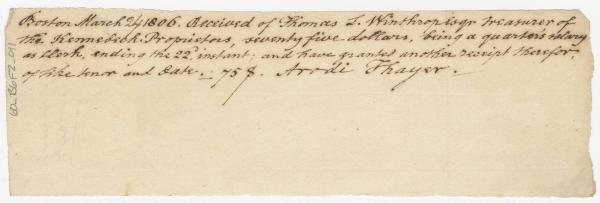 Boston March 24 1806. Received of Thomas L. Winthrop esqr Treasurer of
the Kennebeck Proprietors, seventy five dollars, being a quarter's salary
as Clerk, ending the 22d instant; and have granted another receipt therefor,
of like tenor and date. 75 $. Arodi Thayer.